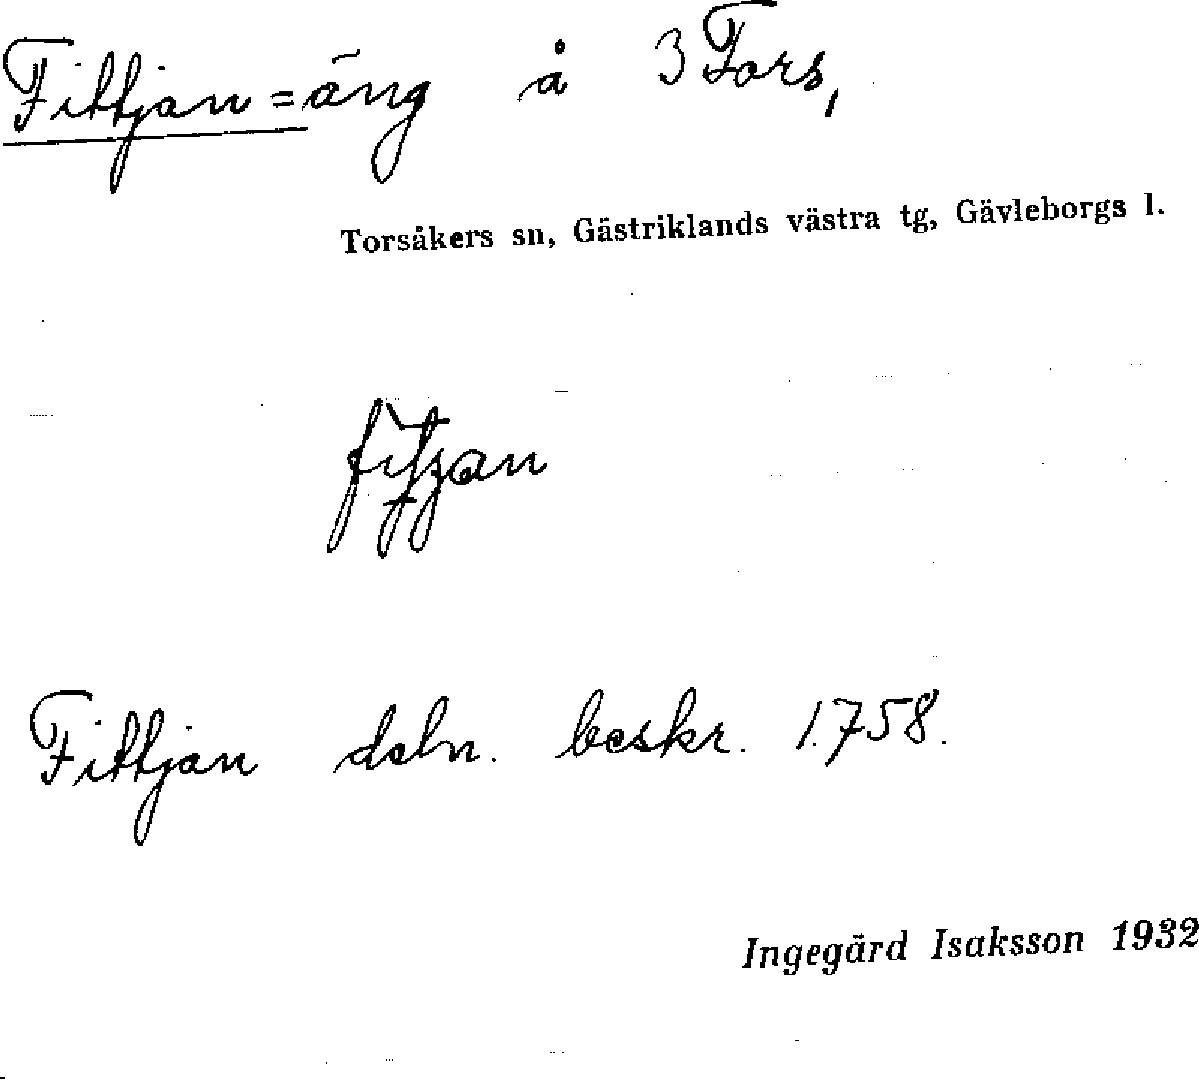 Fittjan = äng å 3 Fors,
Torsåkers sn, Gästriklands västra tg, Gävleborgs l.
Fittjan deln. beskr. 1758.
Ingegärd Isaksson 1932